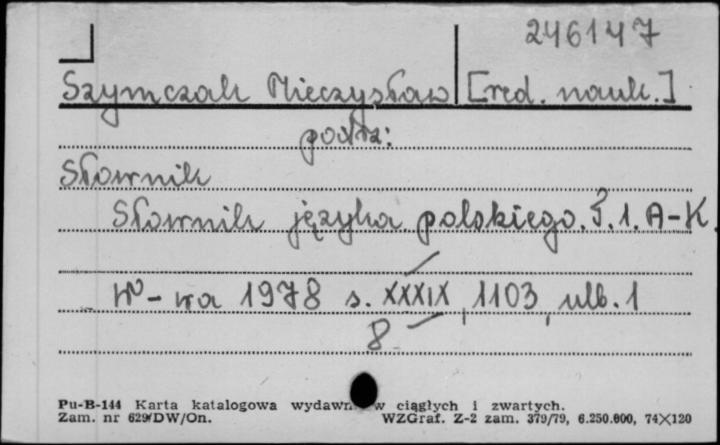 246147
Szymczak Mieczysław [red. nauk.]
patrz:
Słownik
Słownik języka polskiego. T. 1. A-K.
W-wa 1978 s. XXXIX, 1103, ulb. 1
8
Pu-B-144 Karta katalogowa wydawn w ciągłych i zwartych.
Zam. nr 629/DW/On. WZGraf. Z-2 zam. 379/79, 6.250.000, 74×120